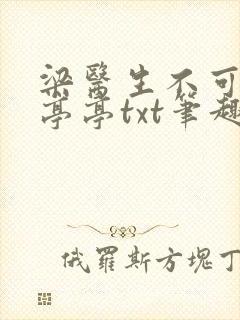 梁醫生不可
亭亭txt筆趣
俄羅斯方塊丁